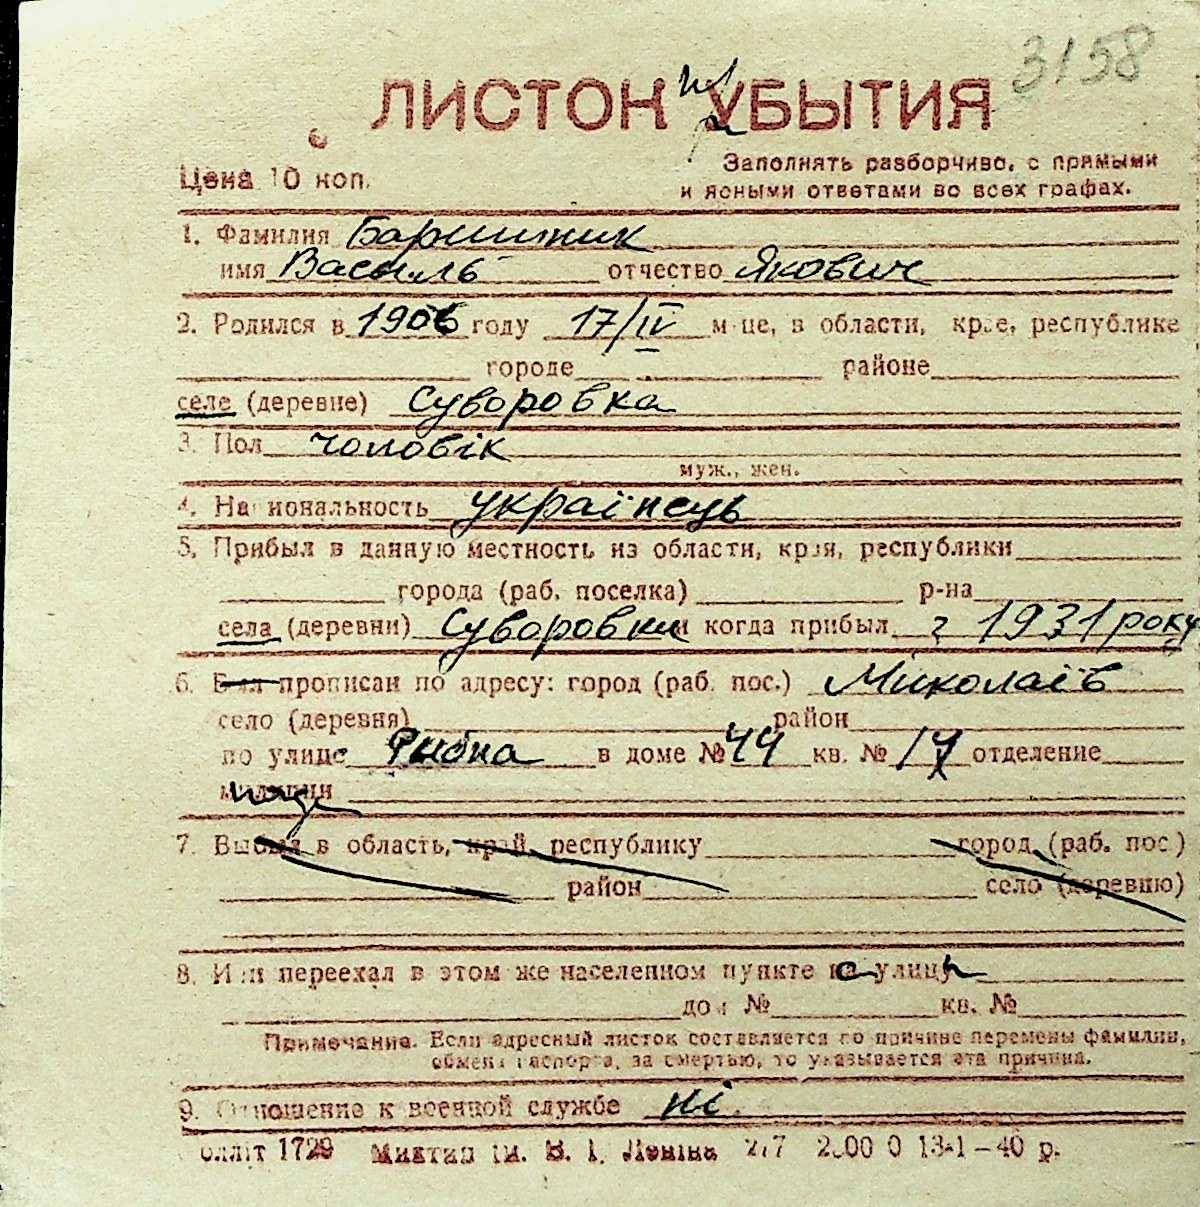 3158
ЛИСТОК УБЫТИЯ
при
Цена 10 коп.
Заполнять разборчиво, с прямыми
и ясными ответами во всех графах.
1. Фамилия Баришник
имя Василь отчество Якович
2. Родился в 1906 году 17/IV м-це, в области, крае, республике
городе районе
селе (деревне) Суворовка
3. Пол чоловік
муж., жен.
4. Национальность українець
5. Прибыл в данную местность из области, края, республики
города (раб. поселка) р-на
села (деревни) Суворовки и когда прибыл з 1931 року
6. Был прописан по адресу: город (раб. пос.) Миколаїв
село (деревня) район
по улице Рибна в доме № 44 кв. № 17 отделение
милиции
7. Выбыл в область, край, республику город, (раб. пос.)
район село (деревню)
8. Или переехал в этом же населенном пункте с улицы
дом № кв. №
Примечание. Если адресный листок составляется по причине перемены фамилии,
обмена паспорта, за смертью, то указывается эта причина.
9. Отношение к военной службе ні.
оллiт 1729 Миктип iм. В. I. Ленiна 277 2000 0 13-1–40 р.